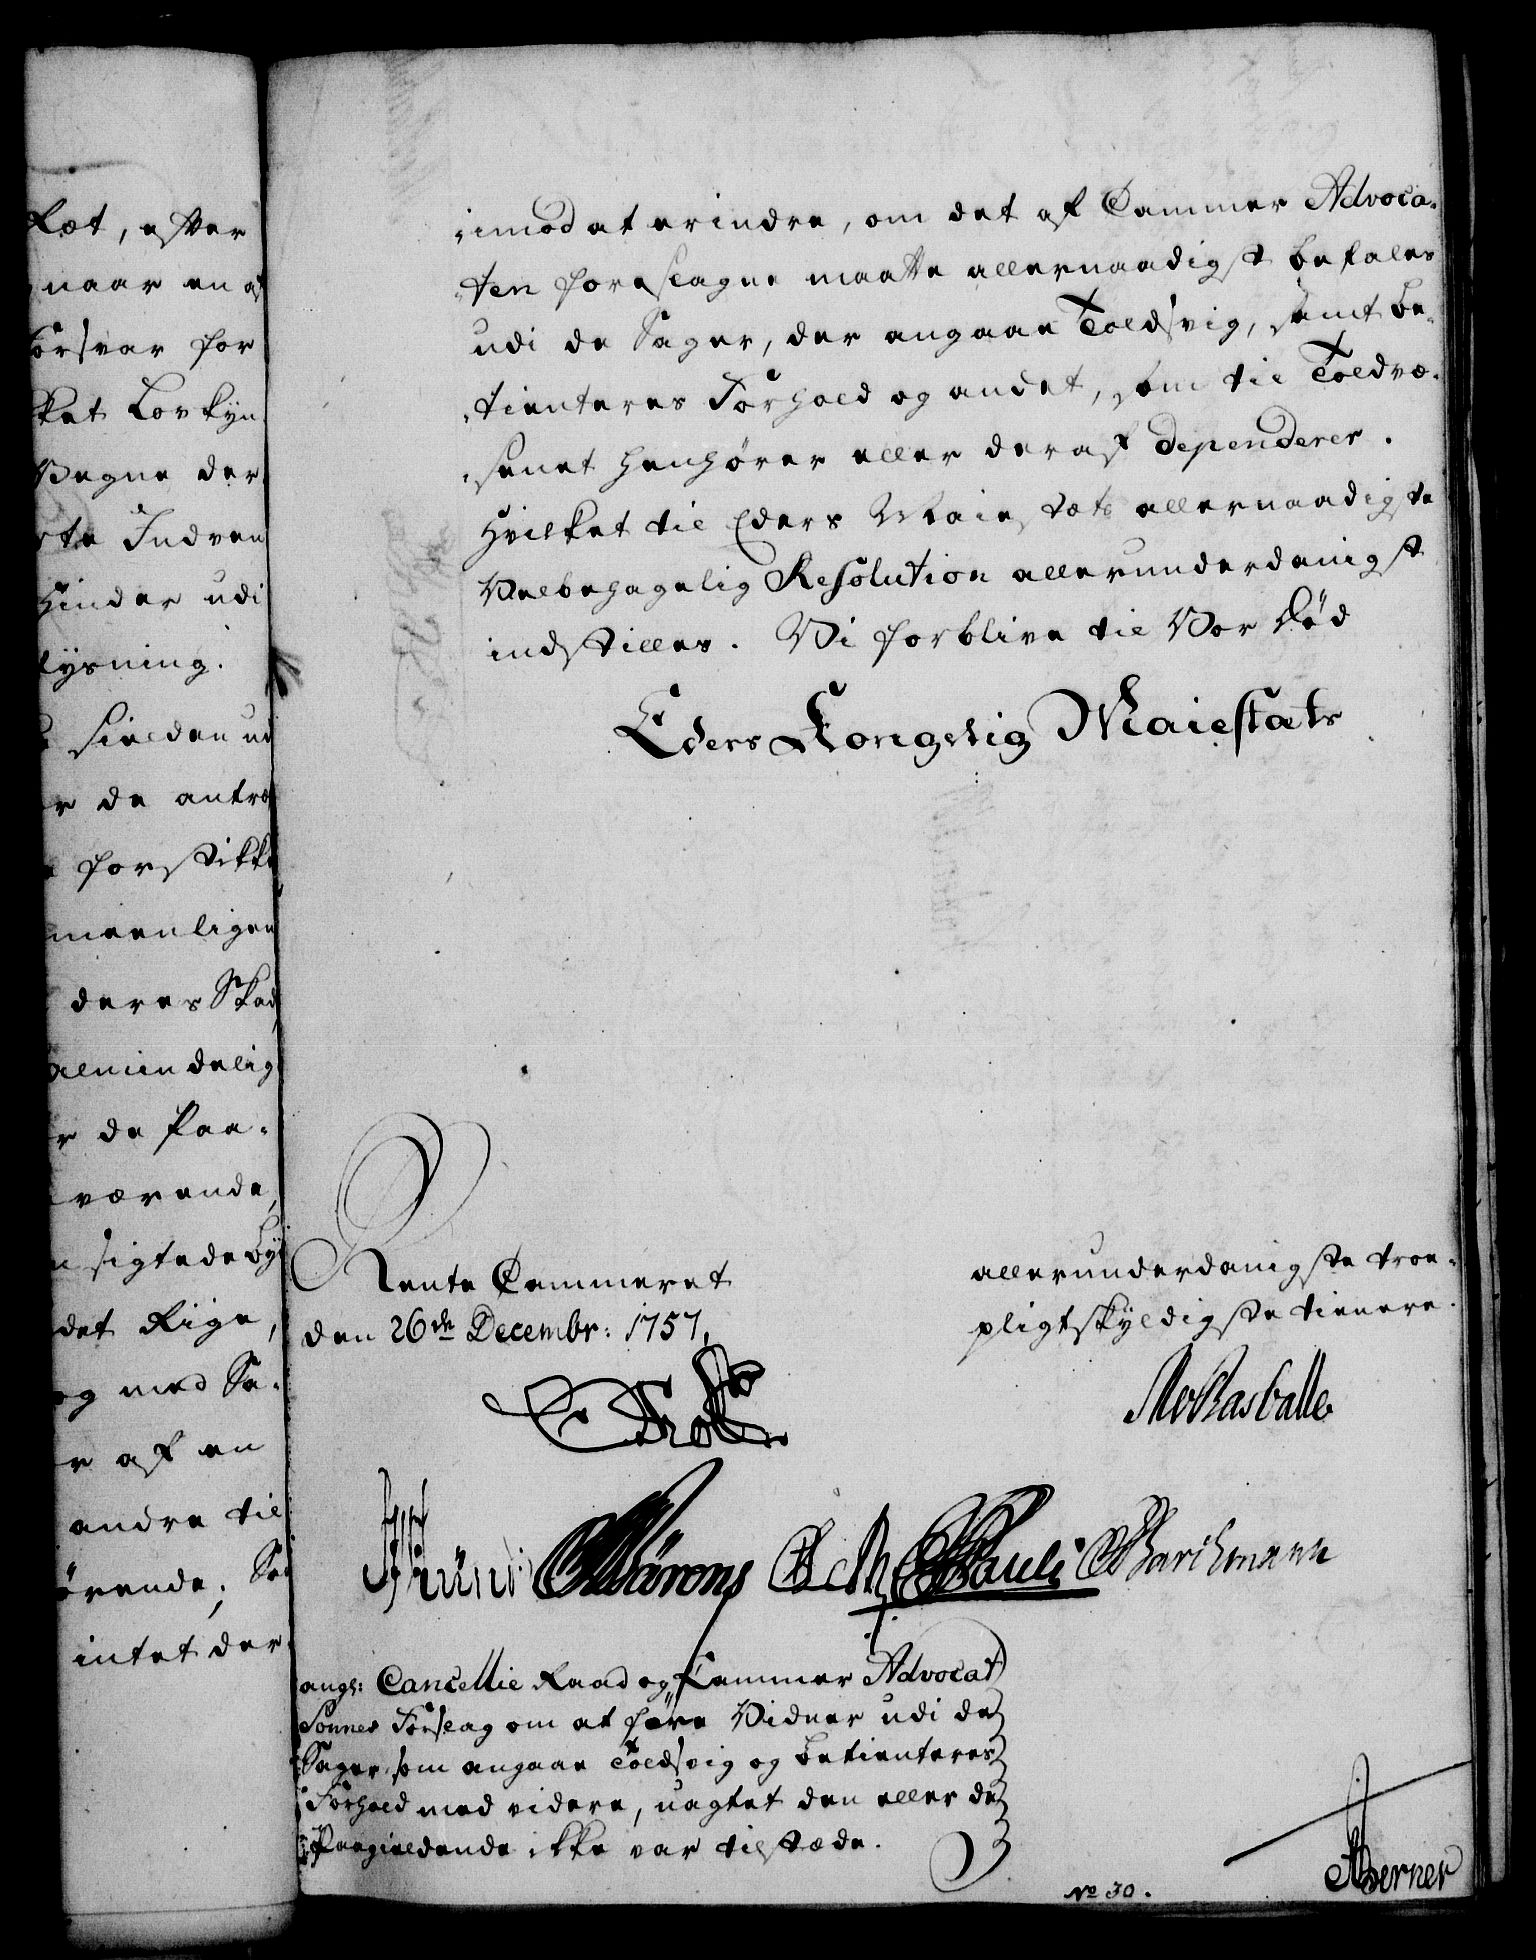 ræt, efter
naar en af
forsvar for
sket Lovkyn
Vegne der
rte Indven
Hinder udi
lysning.
sielden ud
r de antræf
forstikke
meenligen
deres Skad
almindelig
r de Paa-
værende,
n sigtede By
det Rige,
og med Sa-
r af en
andre til
örende; Sa
intet der
imod at erindre, om det af Cammer Advoca-
ten foreslagne maatte allernaadigst befales
udi de Sager, der angaae Toldsvig, samt Be-
tienteres Forhold og andet, som til Toldvæ-
senet henhører eller deraf dependerer.
Hvilket til Eders Maiestæts allernaadigste
Velbehagelig Resolution allerunderdanigst
indstilles. Vi forblive til Vor Død
Eders Kongelig Maiestæts
Rente Cammeret
den 26de Decembr: 1757.
allerunderdanigste troe-
pligtskyldigste tienere.
Holst
Pauli Barchmann
angl: Cancellie Raad og Kammer Advocat
Sonnes Forslag om at føre Vidner udi de
Sager som angaae Toldsvig og Betienteres
Forhold med videre, uagtet den eller de
Paagieldende ikke var tilstæde.
No 30.
Berner